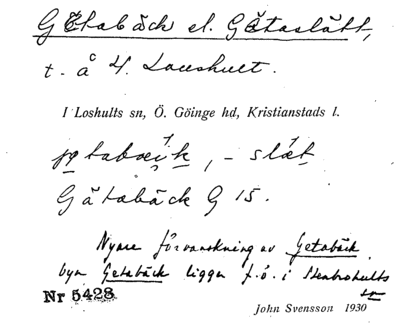 Götabäck el. Götaslätt,
t. å 4. Loushult.
I Loshults sn, Ö. Göinge hd, Kristianstads l.
jøtabæk, - slæt
Götabäck G 15.
Nyare förvanskning av Getabäck.
byn Getabäck ligger f.ö. i Stenbrohults
sn
Nr 5428
John Svensson 1930